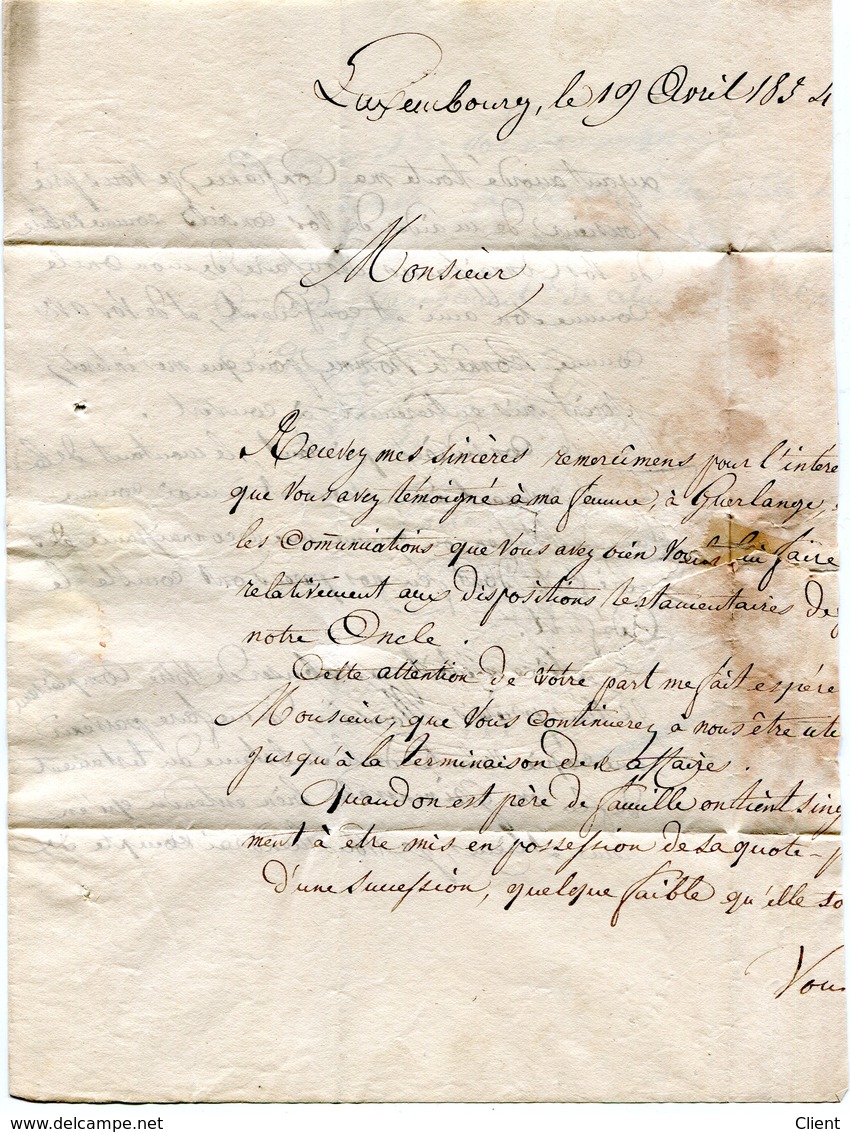 Luxembourg, le 19 Avril 1854
Monsieur,
Recevez mes sincères remercîmens pour l'intere
que Vous avez témoigné à ma femme, à Guerlange,
les Comunications que Vous avez bien Voulu lui faire
relativement aux dispositions testamentaires de
notre Oncle.
Cette attention de Votre part me fait espére
Monsieur, que Vous Continuerez à nous être uti
jusqu'à la terminaison des affaires.
Quand on est père de famille on tient sing
ment à être mis en possession de sa quote-p
d'une succession, quelque faible qu'elle so
Vous
delcampe.net
Client